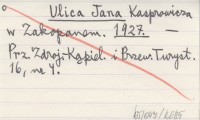 Ulica Jana Kasprowicza
w Zakopanem. 1927. —
Prz. Zdroj.-Kąpiel. i Przew. Turyst.
16, nr 4.